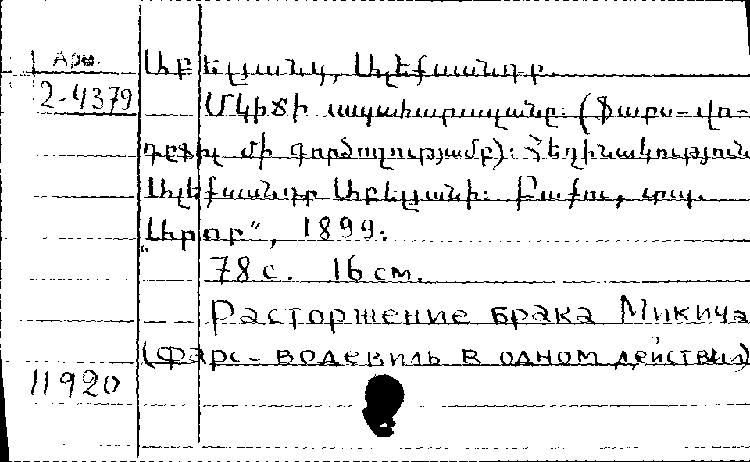 Арм.
2-4379
Աբելյանց, Ալեքսանդր.
Մկիչի ապահարզանը։ (Ֆարս-վո-
դըվիլ մի գործողությամբ)։ Հեղինակություն
Ալեքսանդր Աբելյանի։ Բաքու, տպ.
„Արոր“, 1899.
78 с. 16 см.
Расторжение брака Микича
(Фарс-водевиль в одном действии)
11920